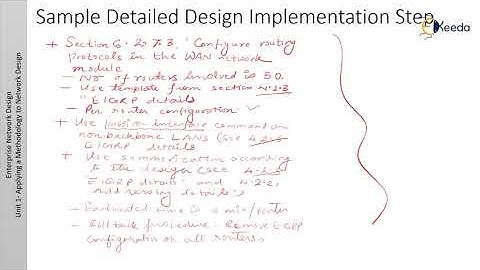 Sample Detailed Design Implementation Step
Keeda
Enterprise Network Design
Unit 1- Applying a Methodology to Network Design
+ Section 6.2.7.3, "Configure routing
protocols in the WAN network
module
- No of routers involved is 50.
- Use template from section 4.2.3
"EIGRP details
- Per router configuration ✓
+ Use passive interface command on
nonbackbone LANs (see 4.2.3
EIGRP details
+ Use summarization according
to the design (see 4.2.3
EIGRP details" and 4.2.2,
Addressing details")
- Estimated time is 10 min/router
- Roll back procedure: Remove EIGRP
configuration on all routers